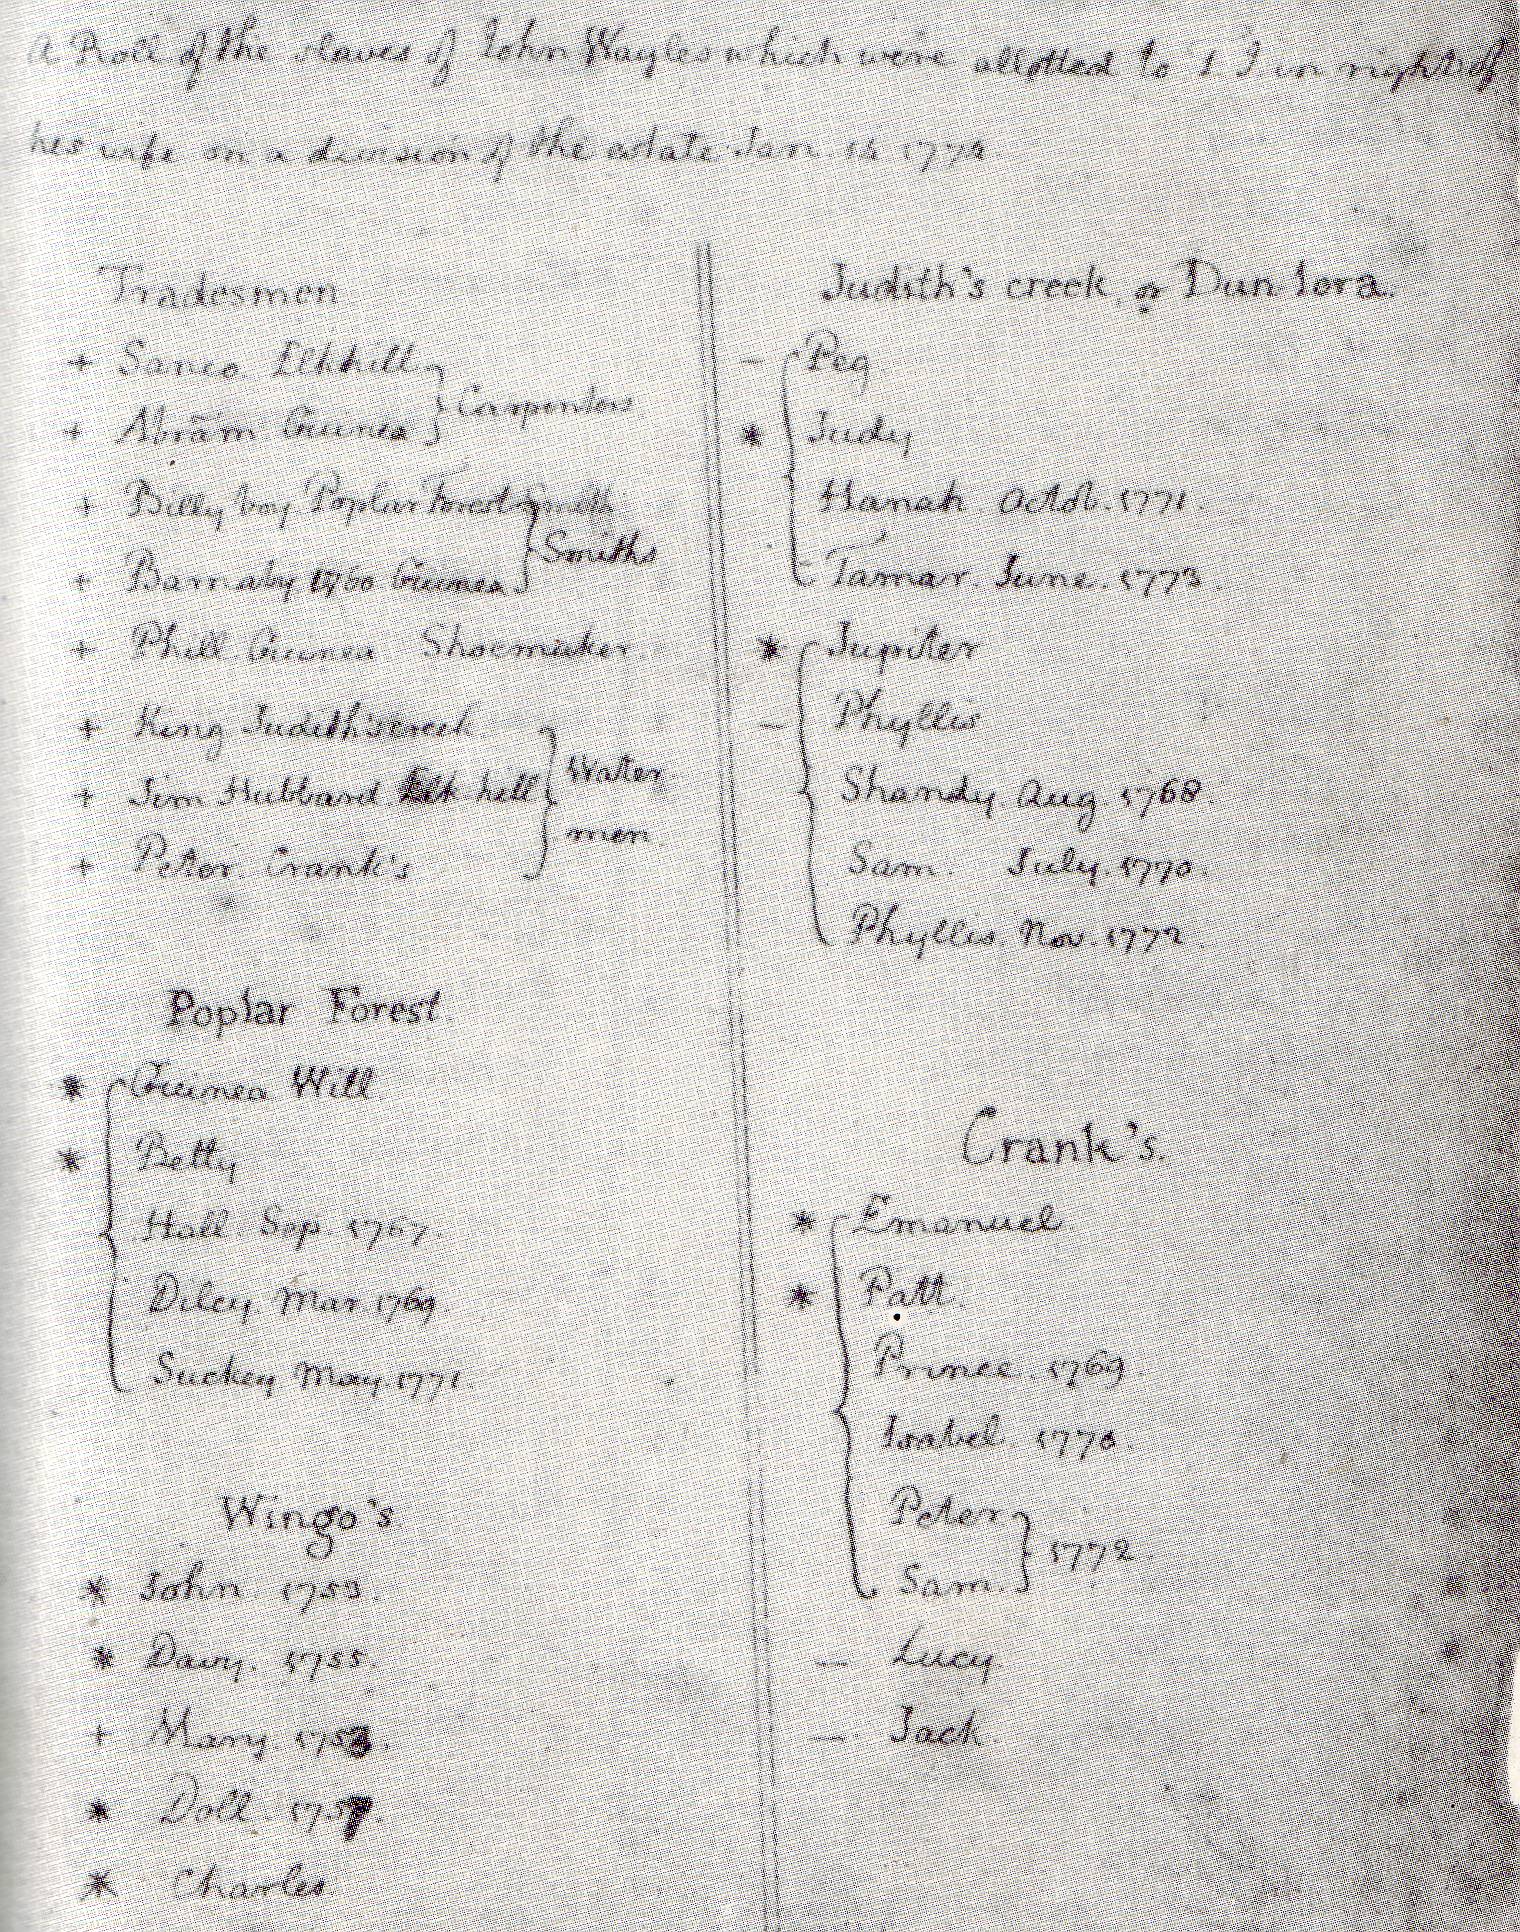 A Roll of the slaves of John Wayles which were allotted to T. J. in right of
his wife on a division of the estate Jan. 14 1774
Tradesmen
+ Sanco. Elkhill
+ Abram Guinea
Carpenters
+ Billy boy Poplar Forest Smith
+ Barnaby 1760 Guinea
Smiths
+ Phill. Guinea Shoemaker.
+ King Judith's creek.
+ Jim Hubbard. Elk hill
+ Peter. Crank's
Water
men.
Poplar Forest.
* Guinea Will.
* Betty
Hall. Sep. 1767.
Dilcy. Mar. 1769.
Suckey May. 1771.
Wingo's.
* John 1753.
* Davy. 1755.
+ Mary 175
* Doll. 175
* Charles.
Judith's creek, or Dun-lora.
– Peg.
* Judy
Hanah Octob. 1771.
Tamar. June. 1773.
* Jupiter
– Phyllis
Shandy. Aug. 1768.
Sam. July. 1770.
Phyllis. Nov. 1772.
Crank's.
* Emanuel.
* Patt.
Prince. 1769.
Isabel. 1770.
Peter
Sam.
1772.
– Lucy.
– Jack.